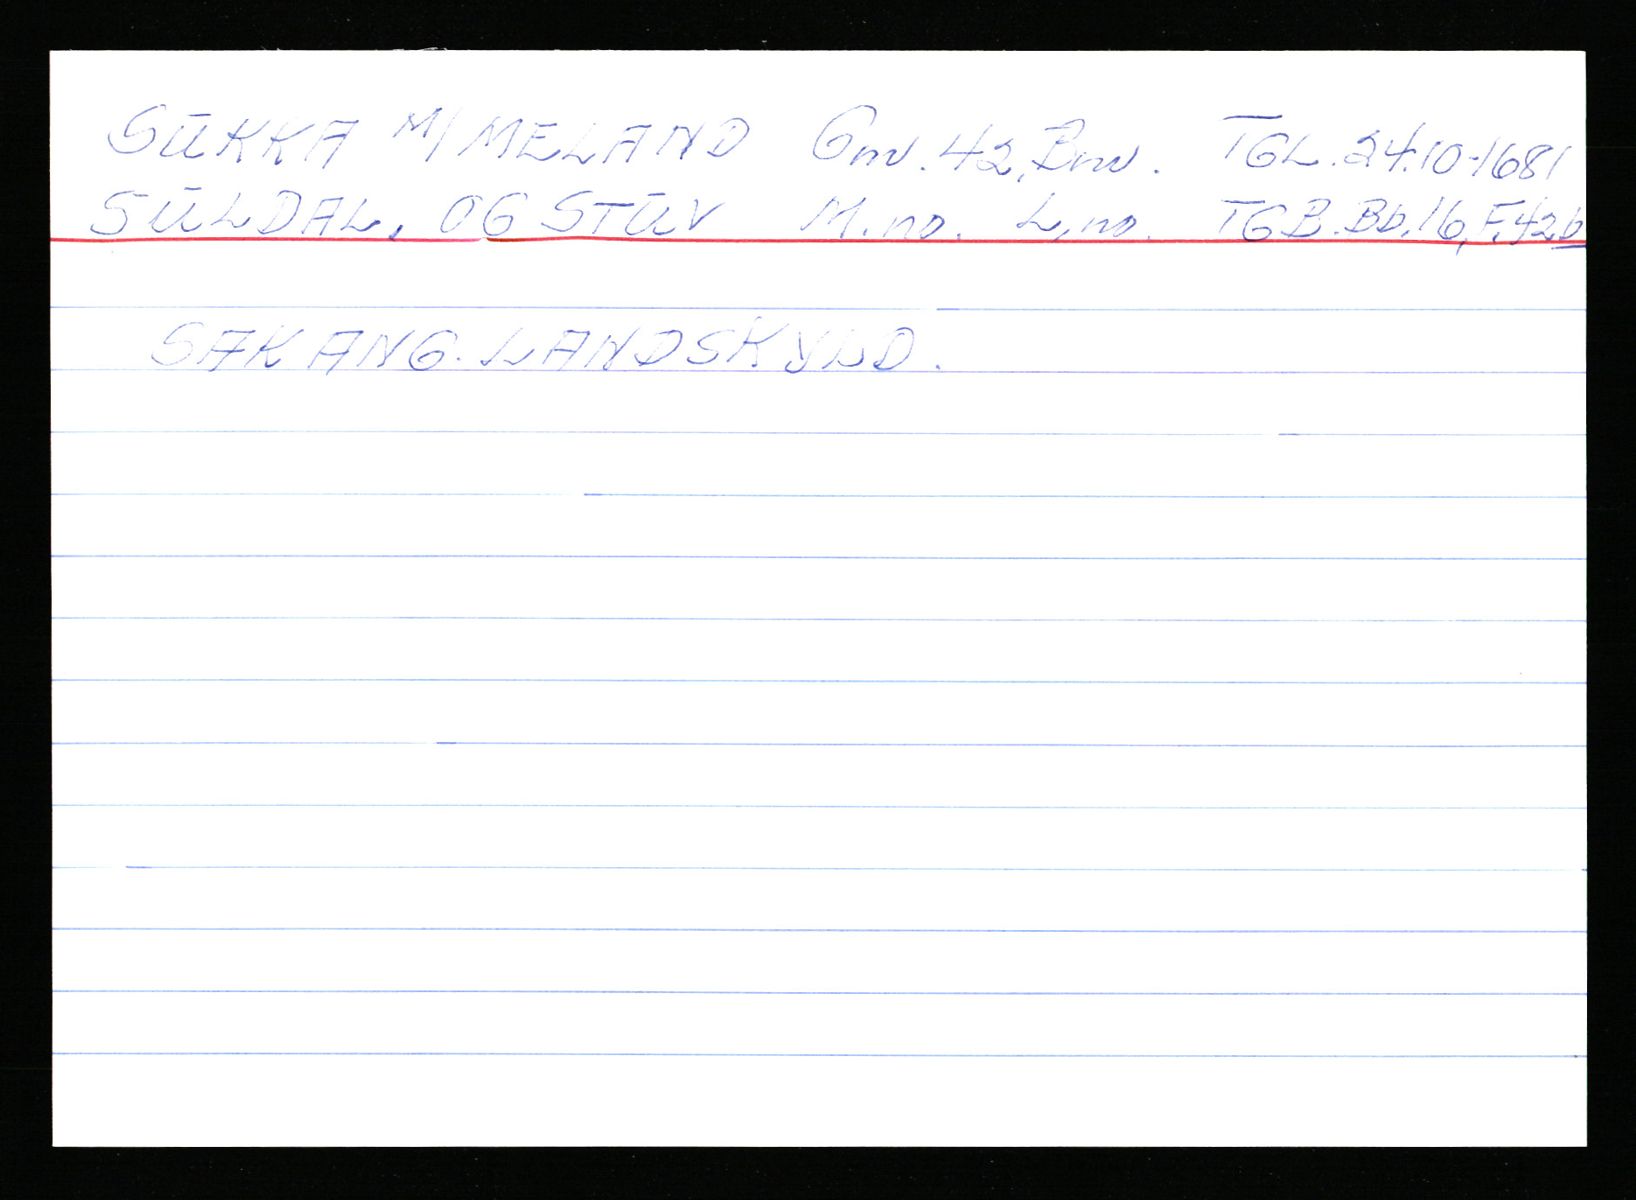 SŪKKA M/MELAND Gnr. 42, Bnr. TGL. 24.10-1681
SŪLDAL, OG STŪV M.no. L.no. TGB. Bb.16, F.42b
SAK ANG. LANDSKYLD.